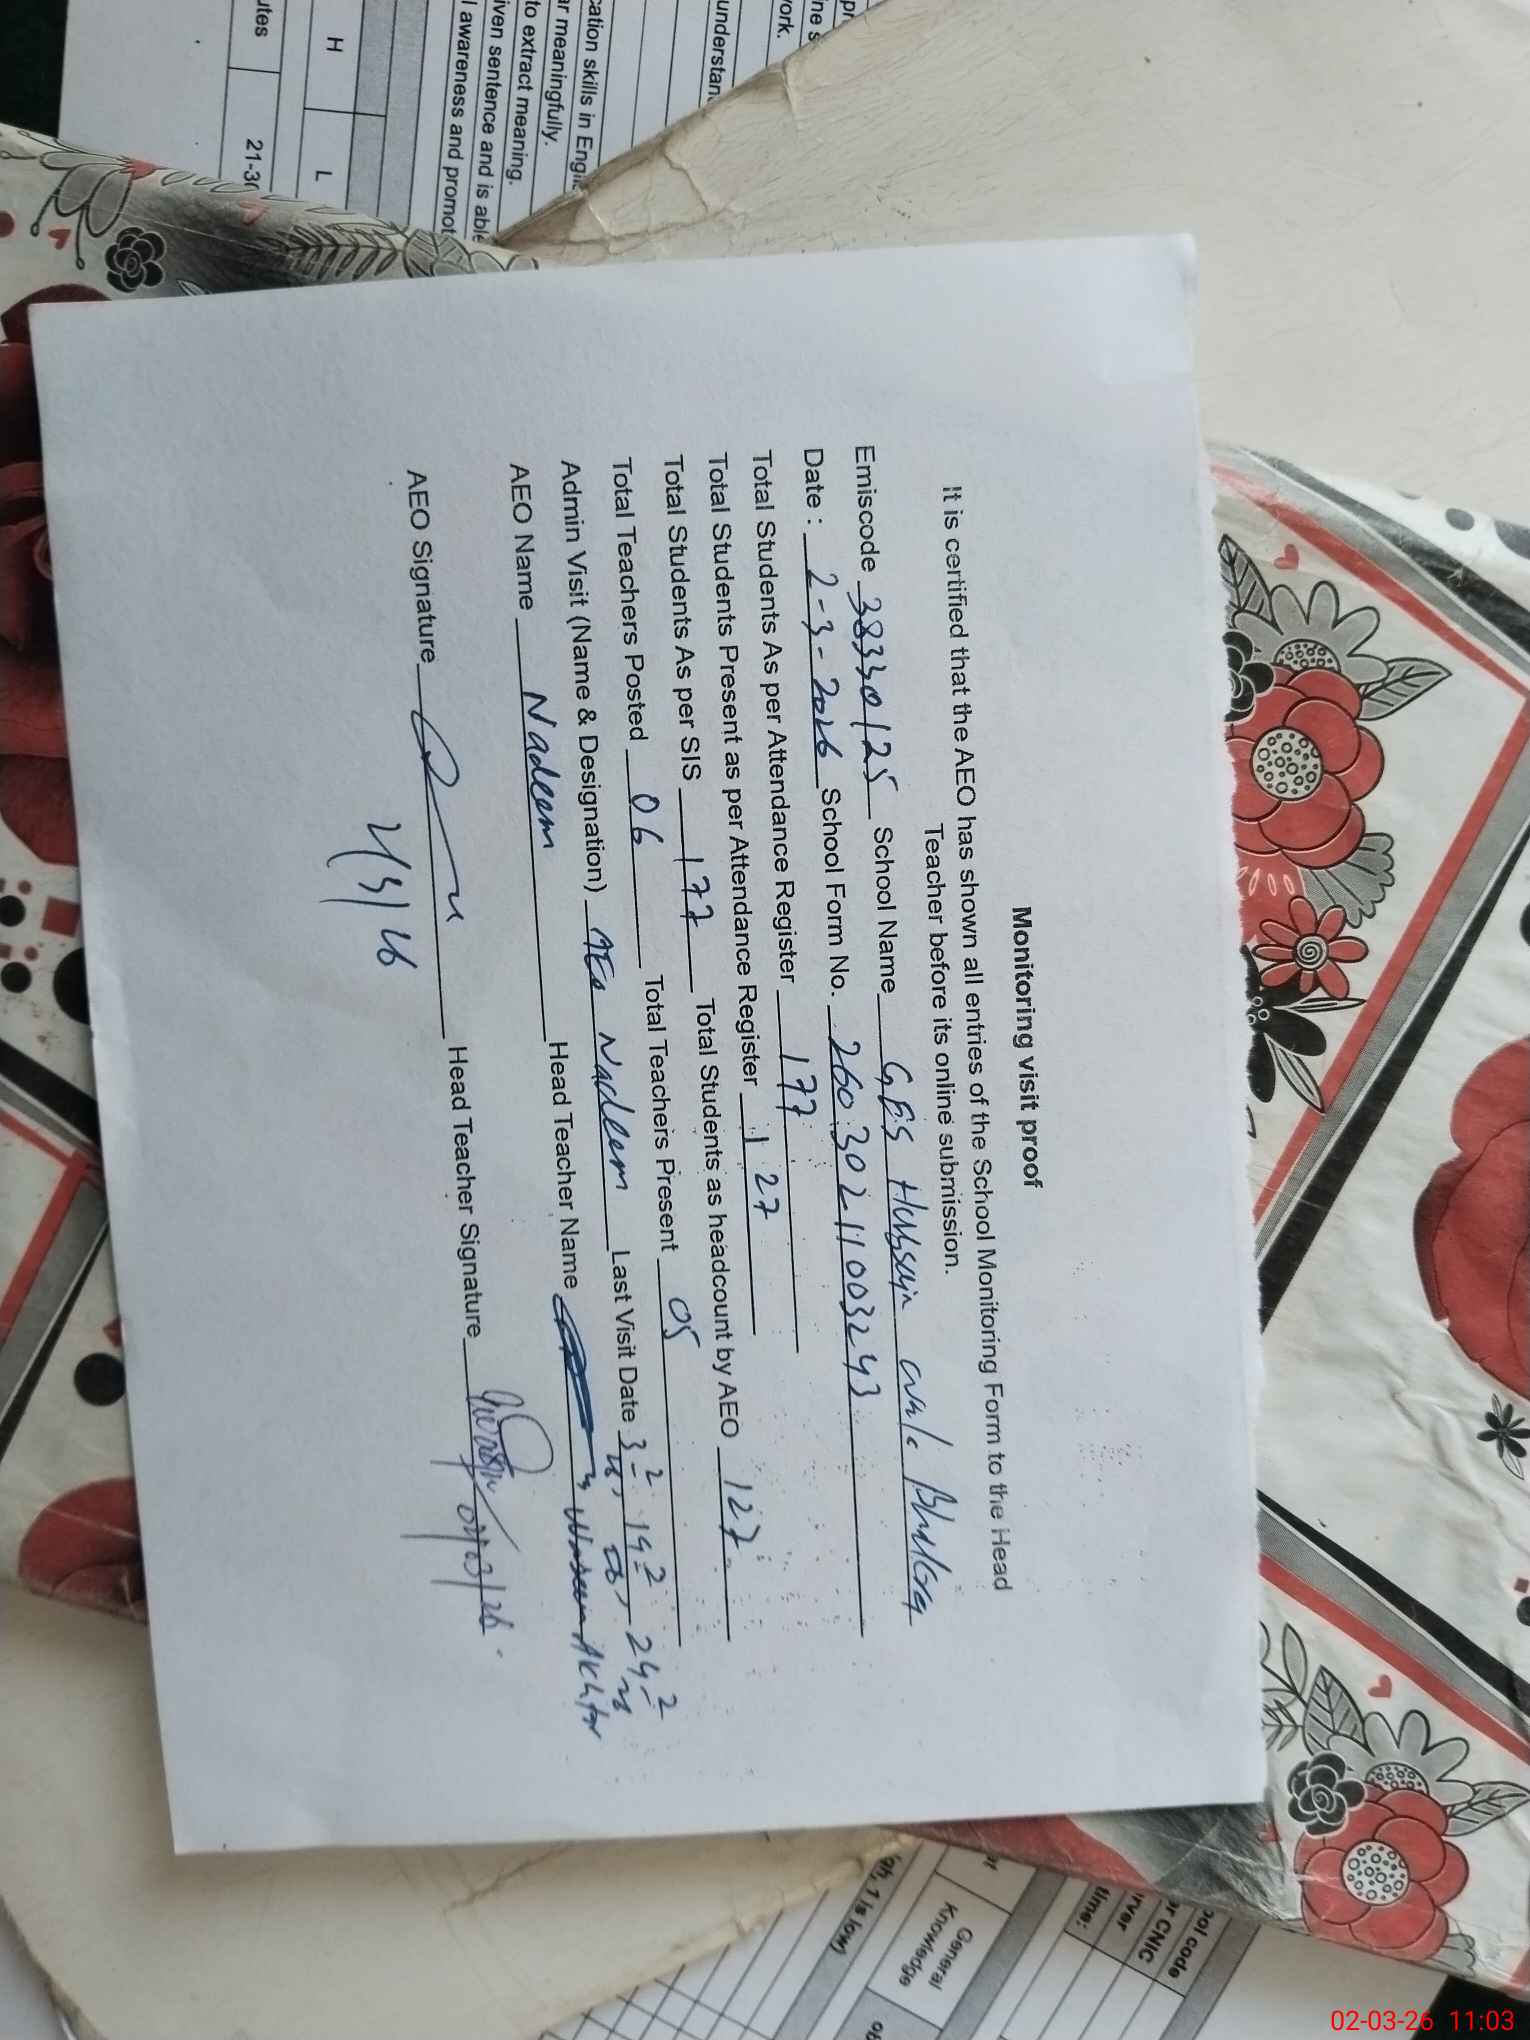 Monitoring visit proof
It is certified that the AEO has shown all entries of the School Monitoring Form to the Head
Teacher before its online submission.
Emiscode 38330125 School Name GES Hussain wala Bhalwa
Date : 2-3-2026 School Form No. 26030211003243
Total Students As per Attendance Register 177
Total Students Present as per Attendance Register 127
Total Students As per SIS 177 Total Students as headcount by AEO 127
Total Teachers Posted 06 Total Teachers Present 05
Admin Visit (Name & Designation) AEO Nadeem Last Visit Date 3-2-26, 19-2-26, 24-2-26
AEO Name Nadeem Head Teacher Name Waseem Akhtar
AEO Signature Head Teacher Signature
2/3/26 02/03/26
utes
21-30
H
L
l awareness and promot
iven sentence and is able
to extract meaning.
ar meaningfully.
cation skills in Engli
understand
ork.
ool code
er CNIC
rver
time:
General
Knowledge
gh, 1 is low)
%
02-03-26 11:03